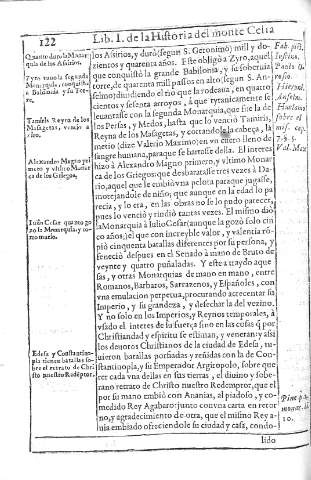 122
Lib. I. de la Historia del monte Celia
los Asirios, y durò (segun S. Geronimo) mill y do-
zientos y quarenta años. Este obligò a Zyro, aquel
que conquistò la grande Babilonia, y su soberuia
torre, de quarenta mill passos en alto (segun S. An-
selmo) diuirtiendo el rio que la rodeaua, en quatro
cientos y sesenta arroyos, à que tyranicamente se
leuantasse con la segunda Monarquia, que fue la de
los Persas, y Medos, hasta que lo venciò Tamiris,
Reyna de los Masagetas, y cortandole la cabeça, la
metio (dize Valerio Maximo) en vn cuero lleno de
sangre humana, paraque se hartasse della. El tercero
hizo à Alexandro Magno primero, y vltimo Monar
ca de los Griegos: que desbaratasse tres vezes à Da-
rio, aquel que le embiò vna pelota paraque jugasse,
motejandole de niño; que aunque en la edad lo pa
recia, y lo era, en las obras no se lo pudo pareces,
pues lo venciò y rindiò tantas vezes. El mismo dio
la Monarquia à Iulio Cesar (aunque la gozò solo cin
co años,) el que con increyble valor, y valentia rō-
piò cinquenta batallas diferentes por su persona, y
feneciò despues en el Senado à mano de Bruto de
veynte y quatro puñaladas. Y este a traydo aque-
sas, y otras Monarquias de mano en mano, entre
Romanos, Barbaros, Sarrazenos, y Españoles, con
vna emulacion perpetua, procurando acrecentar su
Imperio, y su grandeza, y desechar la del vezino.
Y no solo en los Imperios, y Reynos temporales, à
vsado el interes de su fuerça sino en las cosas q̄ por
Christiandad y espiritu se estiman, y veneran: y asi
los deuotos Christianos de la ciudad de Edesa, tu-
uieron batallas porfiadas y reñidas con la de Con-
stantinopla, y su Emperador Argiropolo, sobre que
rer cada vna dellas en sus tierras, el diuino y sobe-
rano retrato de Christo nuestro Redemptor, que el
por su mano embiò con Ananias, al piadoso, y co-
medido Rey Agabaro: junto con vna carta en retor
no, y agradecimiento de otra, que el mismo Rey a-
uia embiado ofreciendole su ciudad y casa, condo-
lido
Quanto durò la Monar
quia de los Asirios.
Zyro tuuo la segunda
Monarquia, conquistò
à Babilonia y su To-
rre.
Tamiris Reyna de los
Masagetas, venciò a
Alexandro Magno pri
mero y vltimo Monar
ca de los Griegos.
Iulio Cesar quanto go
zò la Monarquia y co
mo murio.
Edesa y Constantino-
pla tienen batallas so-
bre el retrato de Chri
sto nuestro Redemptor.
Hieronl.
Anselm.
sobre el
mis. cap.
7. 9. 5.
Val. Max
10.